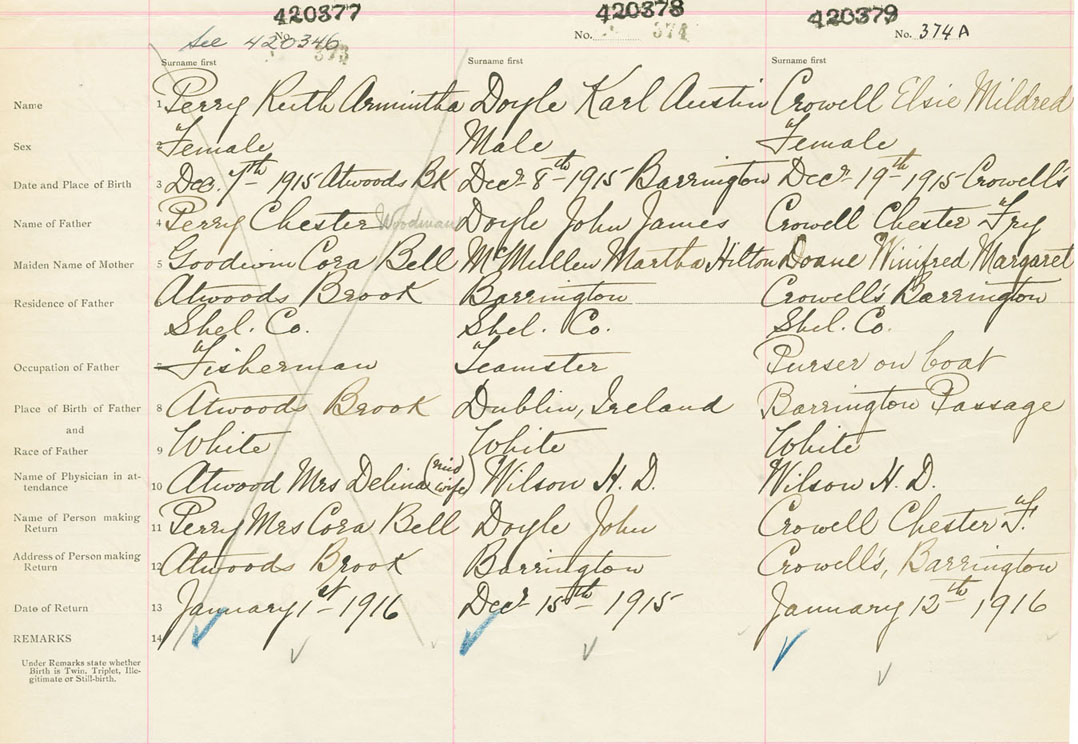 420377 420378 420379
See 420346
No. 373 No. 374 No. 374 A
Surname first Surname first Surname first
Name 1 Perry Ruth Armintha Doyle Karl Austin Crowell Elsie Mildred
Sex 2 Female Male Female
Date and Place of Birth 3 Dec. 7th 1915 Atwoods BK Decr 8th 1915 Barrington Decr 19th 1915 Crowell's
Name of Father 4 Perry Chester Woodman Doyle John James Crowell Chester Fry
Maiden Name of Mother 5 Goodwin Cora Bell McMullen Martha Hilton Doane Winifred Margaret
Residence of Father Atwoods Brook Barrington Crowell's Barrington
Shel. Co. Shel. Co. Shel. Co.
Occupation of Father 7 Fisherman Teamster Purser on boat
Place of Birth of Father 8 Atwoods Brook Dublin, Ireland Barrington Passage
and
Race of Father 9 White White White
Name of Physician in at-
tendance 10 Atwood Mrs Delina (mid wife) Wilson H. D. Wilson H. D.
Name of Person making
Return 11 Perry Mrs Cora Bell Doyle John Crowell Chester F.
Address of Person making
Return 12 Atwoods Brook Barrington Crowell's, Barrington
Date of Return 13 January 1st 1916 Decr 15th 1915 January 12th 1916
REMARKS 14
Under Remarks state whether
Birth is Twin, Triplet, Ille-
gitimate or Still-birth.